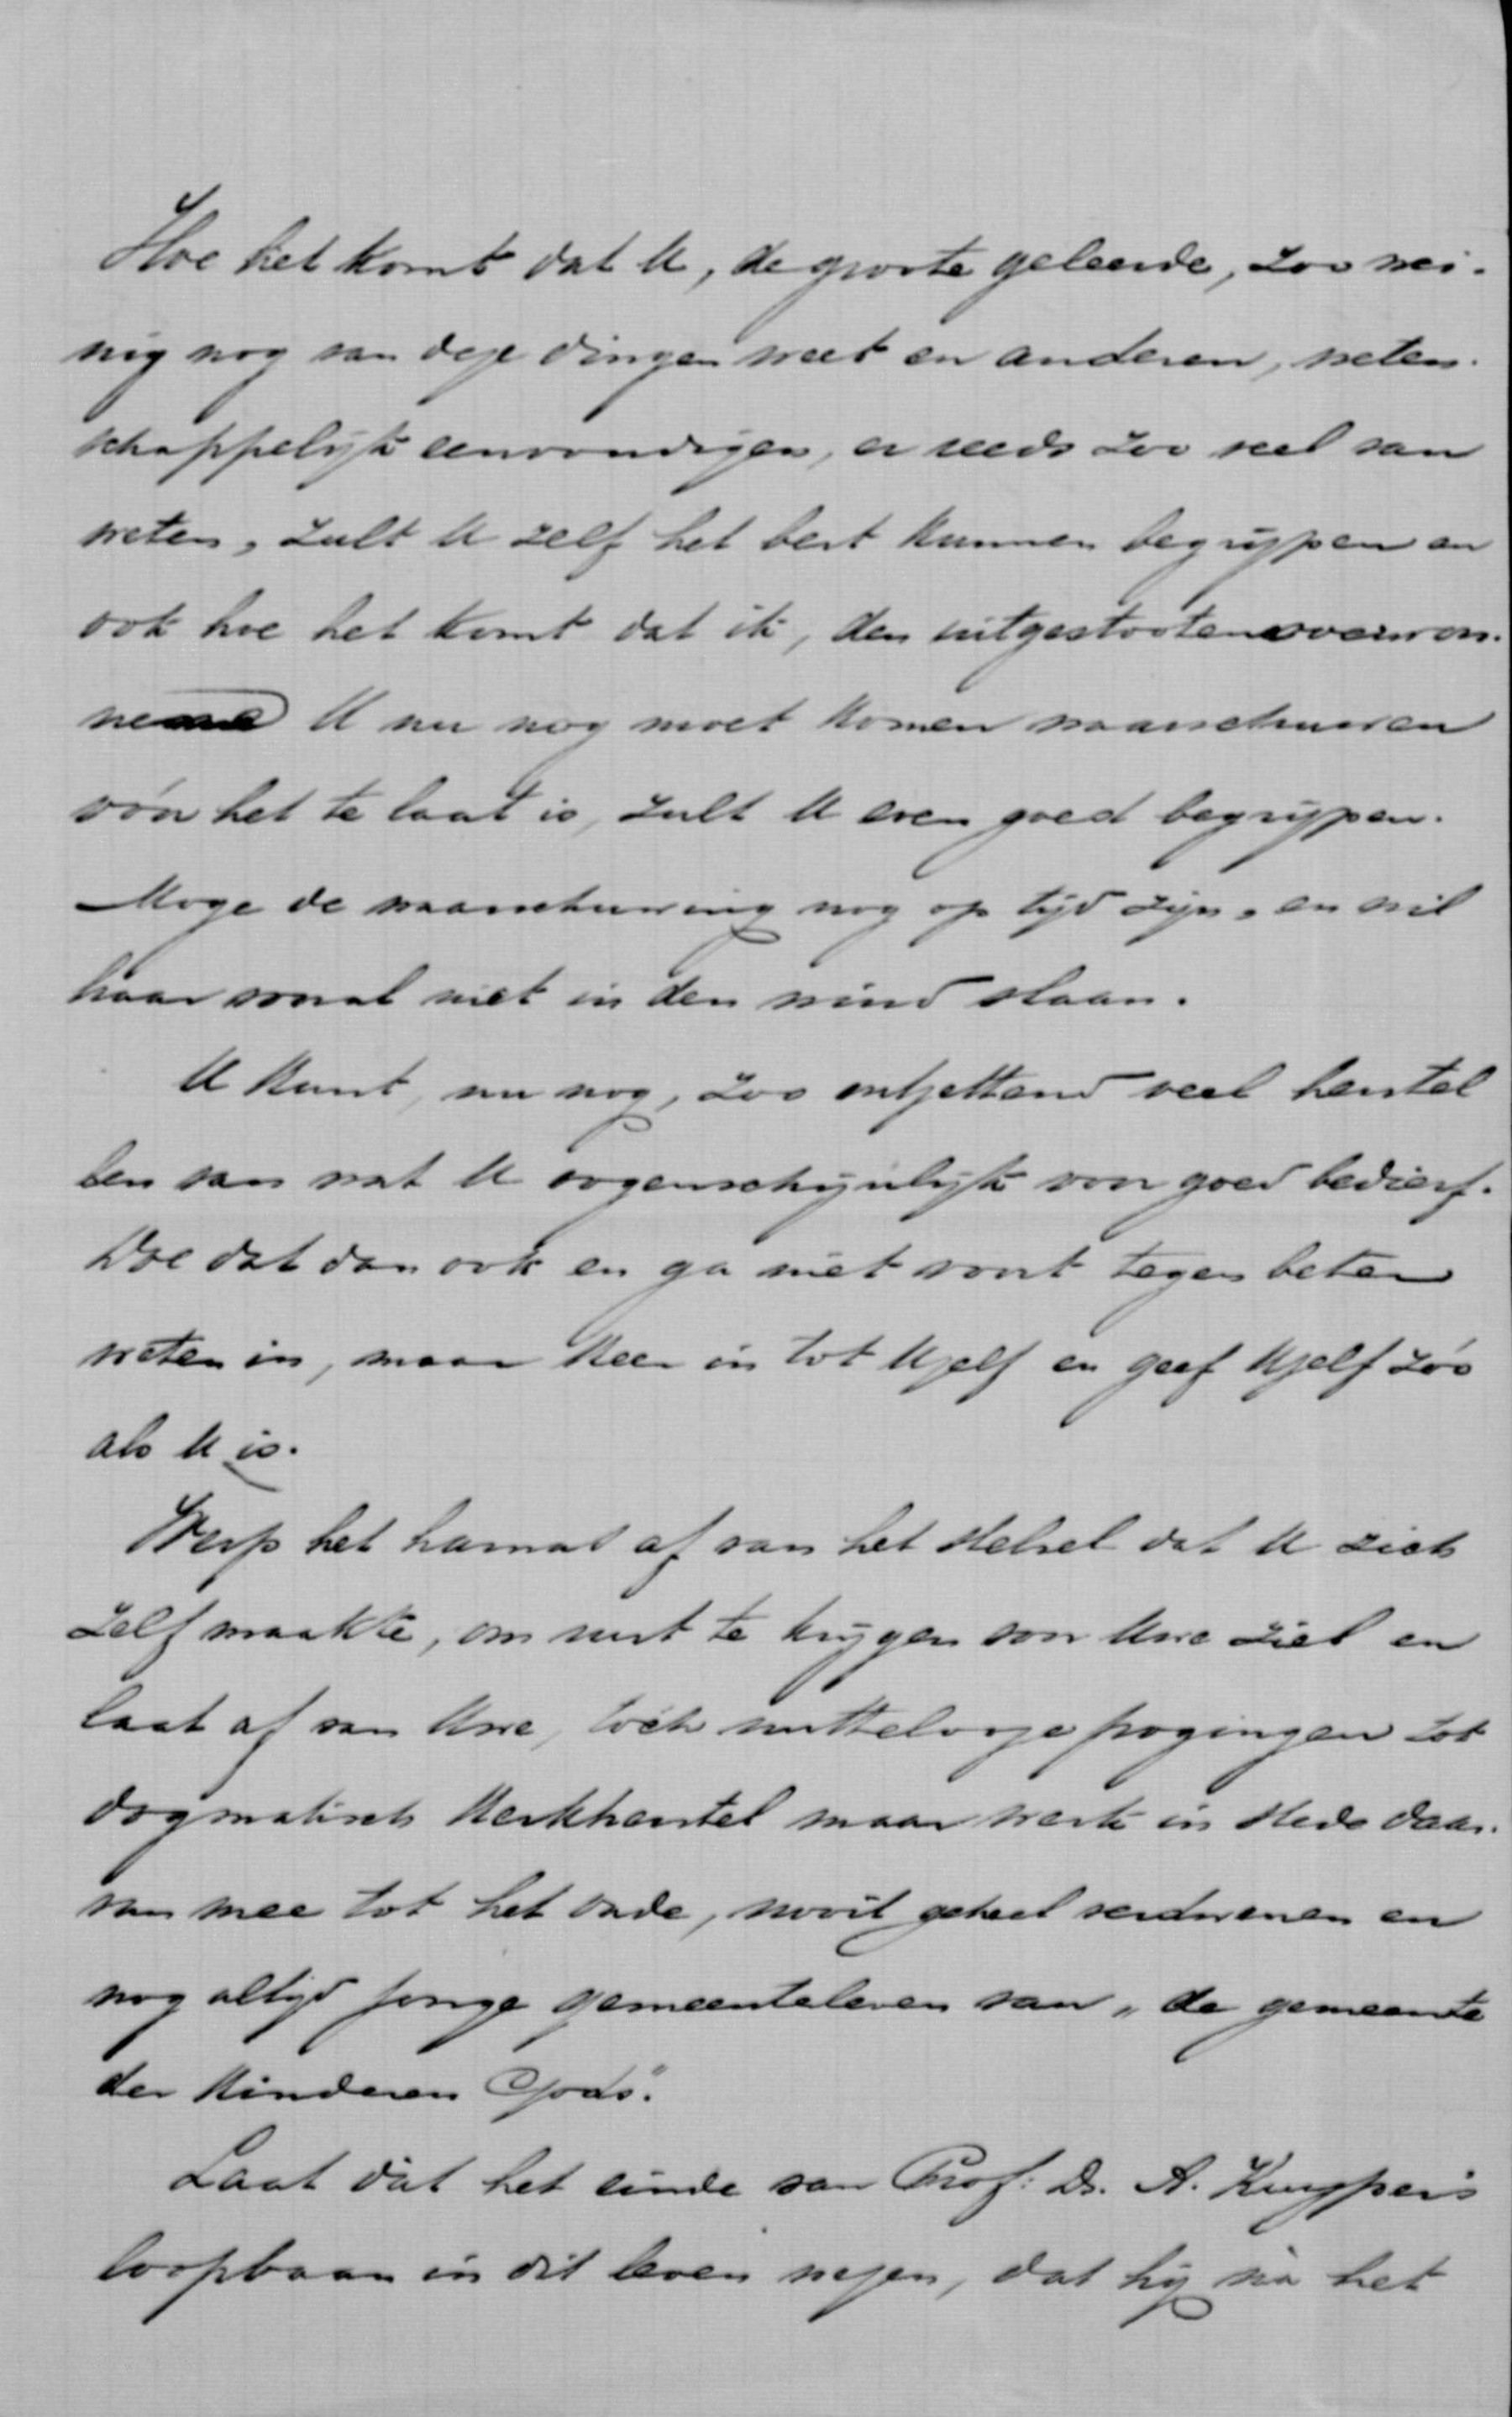 Hoe het komt dat U, de groote geleerde, zoo wei-
nig nog van deze dingen weet en anderen, weten-
schappelijk eenvoudigen, er reeds zoo veel van
weten, zult U zelf het best kunnen begrijpen en
ook hoe het komt dat ik, den uitgestooten overwon-
nene U nu nog moet komen waarschuwen
vóór het te laat is, zult U even goed begrijpen.
Moge de waarschuwing nog op tijd zijn, en wil
haar vooral niet in den wind slaan.
U kunt, nu nog, zoo ontzettend veel herstel
len van wat U oogenschijnlijk voor goed bedierf.
Doe dat dan ook en ga niet voort tegen beter
weten in, maar keer in tot Uzelf en geef Uzelf zóó
als U is.
Werp het harnas af van het stelsel dat U zich
zelf maakte, om rust te krijgen voor Uwe ziel en
laat af van Uwe, tóch nuttelooze pogingen tot
dogmatisch kerkherstel maar werk in stede daar-
van mee tot het oude, nooit geheel verdwenen en
nog altijd jonge gemeenteleven van „de gemeente
der kinderen Gods".
Laat dàt het einde van Prof. Dr. A. Kuyper's
loopbaan in dit leven wezen, dat hij nà het